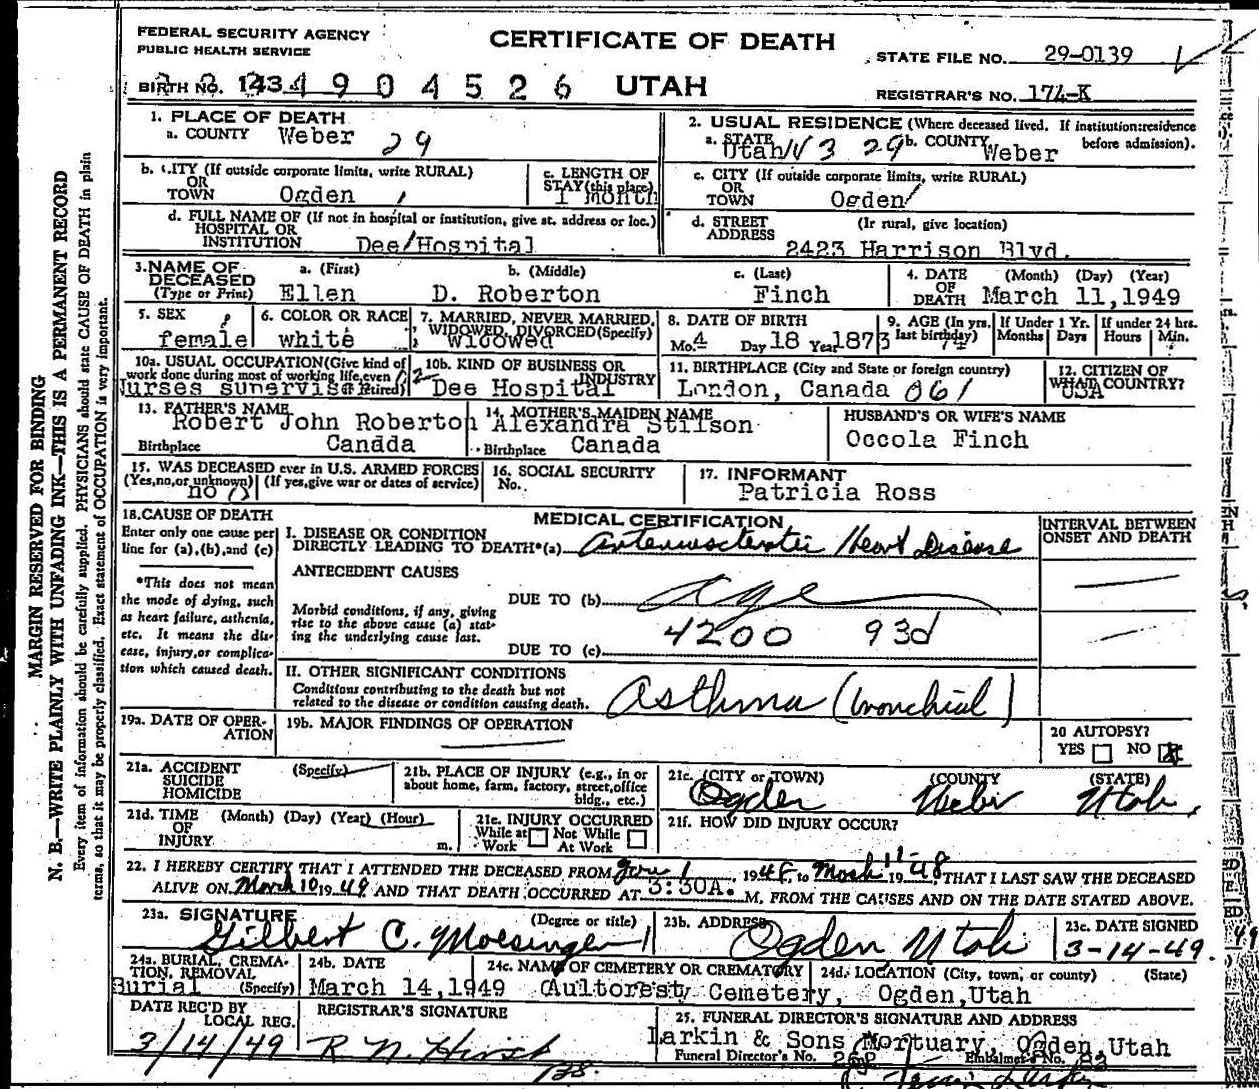 FEDERAL SECURITY AGENCY
PUBLIC HEALTH SERVICE
CERTIFICATE OF DEATH
STATE FILE NO. 29-0139
BIRTH NO. 143 4 9 0 4 5 2 6 UTAH
REGISTRAR'S NO. 174-K
1. PLACE OF DEATH
a. COUNTY Weber 29
2. USUAL RESIDENCE (Where deceased lived. If institution:residence before admission).
a. STATE Utah 3 29 b. COUNTY Weber
b. CITY (If outside corporate limits, write RURAL)
OR
TOWN Ogden
c. LENGTH OF
STAY (this place)
1 month
c. CITY (If outside corporate limits, write RURAL)
OR
TOWN Ogden
d. FULL NAME OF (If not in hospital or institution, give st. address or loc.)
HOSPITAL OR
INSTITUTION Dee Hospital
d. STREET (If rural, give location)
ADDRESS 2423 Harrison Blvd.
3. NAME OF
DECEASED
(Type or Print)
a. (First) b. (Middle) c. (Last)
Ellen D. Roberton Finch
4. DATE (Month) (Day) (Year)
OF
DEATH March 11,1949
5. SEX
female
6. COLOR OR RACE
white
7. MARRIED, NEVER MARRIED,
WIDOWED, DIVORCED (Specify)
Widowed
8. DATE OF BIRTH
Mo. 4 Day 18 Year 1873
9. AGE (In yrs.
last birthday)
If Under 1 Yr.
Months Days
If under 24 hrs.
Hours Min.
10a. USUAL OCCUPATION (Give kind of
work done during most of working life, even
if retired)
Nurses supervisor
10b. KIND OF BUSINESS OR
INDUSTRY
Dee Hospital
11. BIRTHPLACE (City and State or foreign country)
London, Canada 061
12. CITIZEN OF
WHAT COUNTRY?
USA
13. FATHER'S NAME
Robert John Roberton
Birthplace Candda
14. MOTHER'S MAIDEN NAME
Alexandra Stilson
Birthplace Canada
HUSBAND'S OR WIFE'S NAME
Occola Finch
15. WAS DECEASED ever in U.S. ARMED FORCES
(Yes,no,or unknown) (If yes,give war or dates of service)
no
16. SOCIAL SECURITY
No.
17. INFORMANT
Patricia Ross
18. CAUSE OF DEATH
Enter only one cause per
line for (a),(b),and (c)
*This does not mean
the mode of dying, such
as heart failure, asthenia,
etc. It means the dis-
ease, injury, or complica-
tion which caused death.
MEDICAL CERTIFICATION
INTERVAL BETWEEN
ONSET AND DEATH
I. DISEASE OR CONDITION
DIRECTLY LEADING TO DEATH*(a) Arteriosclerotic Heart Disease
ANTECEDENT CAUSES
DUE TO (b) age
Morbid conditions, if any, giving
rise to the above cause (a) stat-
ing the underlying cause last.
4200 93d
DUE TO (c)
II. OTHER SIGNIFICANT CONDITIONS
Conditions contributing to the death but not
related to the disease or condition causing death.
Asthma (bronchial)
19a. DATE OF OPER-
ATION
19b. MAJOR FINDINGS OF OPERATION
20 AUTOPSY?
YES NO X
21a. ACCIDENT
SUICIDE
HOMICIDE
(Specify)
21b. PLACE OF INJURY (e.g., in or
about home, farm, factory, street,office
bldg., etc.)
21c. (CITY or TOWN) (COUNTY (STATE)
Ogden Weber Utah
21d. TIME (Month) (Day) (Year) (Hour)
OF
INJURY m.
21e. INJURY OCCURRED
While at Work Not While At Work
21f. HOW DID INJURY OCCUR?
22. I HEREBY CERTIFY THAT I ATTENDED THE DECEASED FROM 1 1948, to March 11 1948, THAT I LAST SAW THE DECEASED
ALIVE ON March 10 1949 AND THAT DEATH OCCURRED AT 3:30A. M. FROM THE CAUSES AND ON THE DATE STATED ABOVE.
23a. SIGNATURE (Degree or title)
Gilbert C. Moesinger
23b. ADDRESS
Ogden Utah
23c. DATE SIGNED
3-14-49.
24a. BURIAL, CREMA-
TION, REMOVAL
Burial (Specify)
24b. DATE
March 14,1949
24c. NAME OF CEMETERY OR CREMATORY
Aultorest Cemetery,
24d. LOCATION (City, town, or county) (State)
Ogden,Utah
DATE REC'D BY
LOCAL REG.
3/14/49
REGISTRAR'S SIGNATURE
R N Hirst
25. FUNERAL DIRECTOR'S SIGNATURE AND ADDRESS
Larkin & Sons Mortuary, Ogden,Utah
Funeral Director's No. Embalmer's No.
MARGIN RESERVED FOR BINDING
N. B.—WRITE PLAINLY WITH UNFADING INK—THIS IS A PERMANENT RECORD
Every item of information should be carefully supplied. PHYSICIANS should state CAUSE OF DEATH in plain
terms, so that it may be properly classified. Exact statement of OCCUPATION is very important.